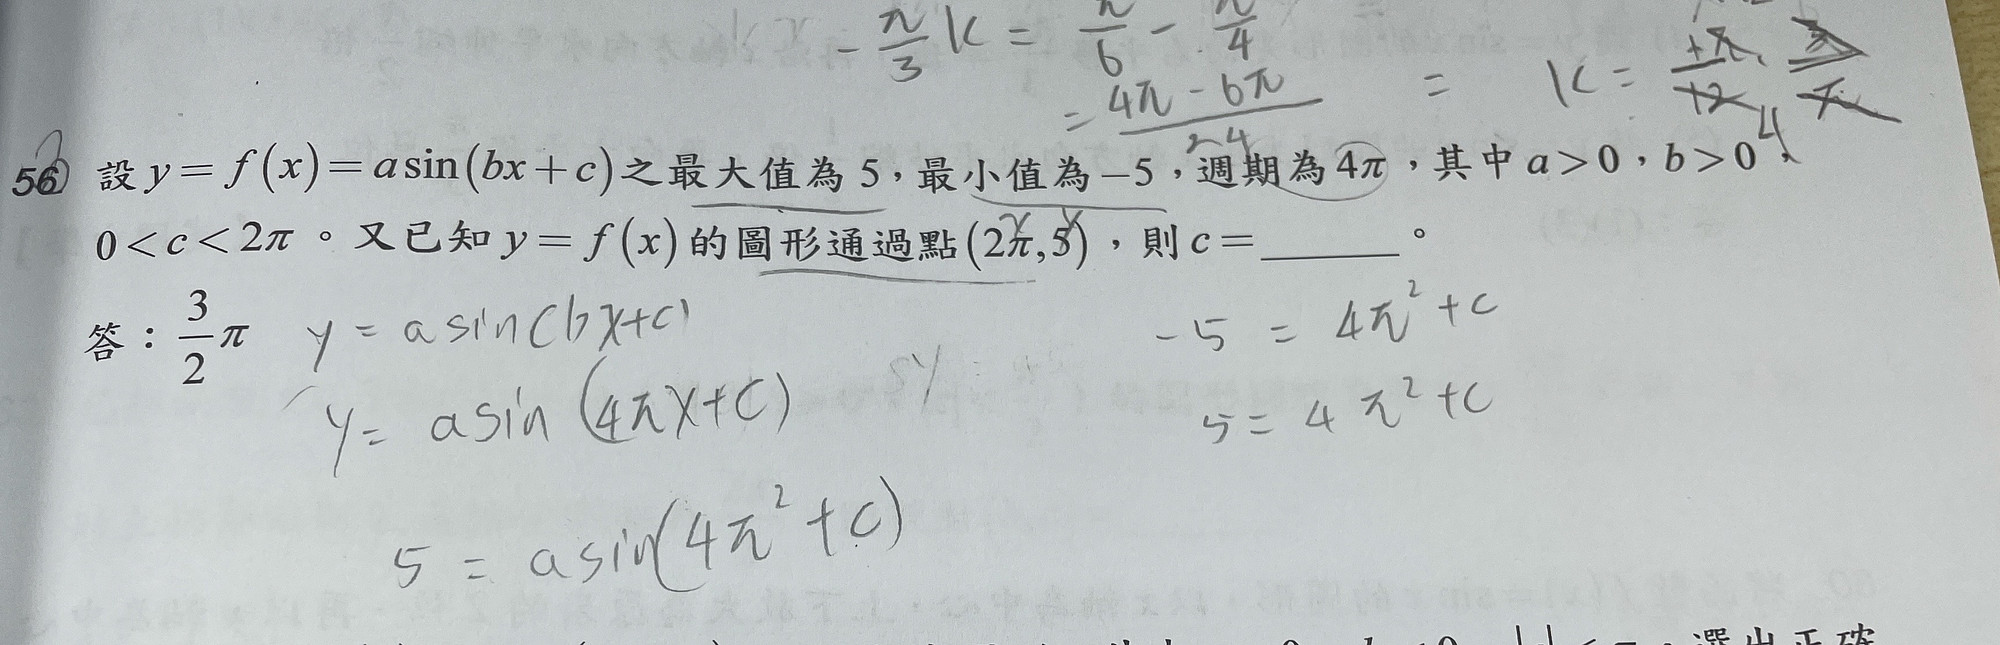 - π/3 K = π/6 - π/4
= (4π - 6π)/24 = K =
56 設 y = f(x) = a sin(bx + c) 之最大值為 5,最小值為 -5,週期為 4π,其中 a > 0,b > 0,
0 < c < 2π。又已知 y = f(x) 的圖形通過點 (2π, 5),則 c = ______。
答:3/2 π
y = a sin(bx+c)
y = a sin(4πx+c)
5 = a sin(4π²+c)
-5 = 4π²+c
5 = 4π²+c
選出正確